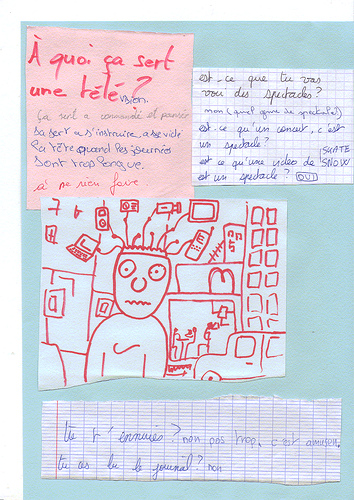 À quoi ça sert
une télé?
vision.
Ça sert a commande et penser
sa sert a s'instruire, a se vider
la tête quand les journées
sont trop longue.
a ne rien faire.
est-ce que tu vas
voir des spectacles?
non (quel genre de spectacle)
est-ce qu'un concert, c'est
un spectacle?
est ce qu'une video de SKATE
SNOW
est un spectacle? OUI
tu t'ennuies? non pas trop, c'est amusant.
tu as lu le journal? non